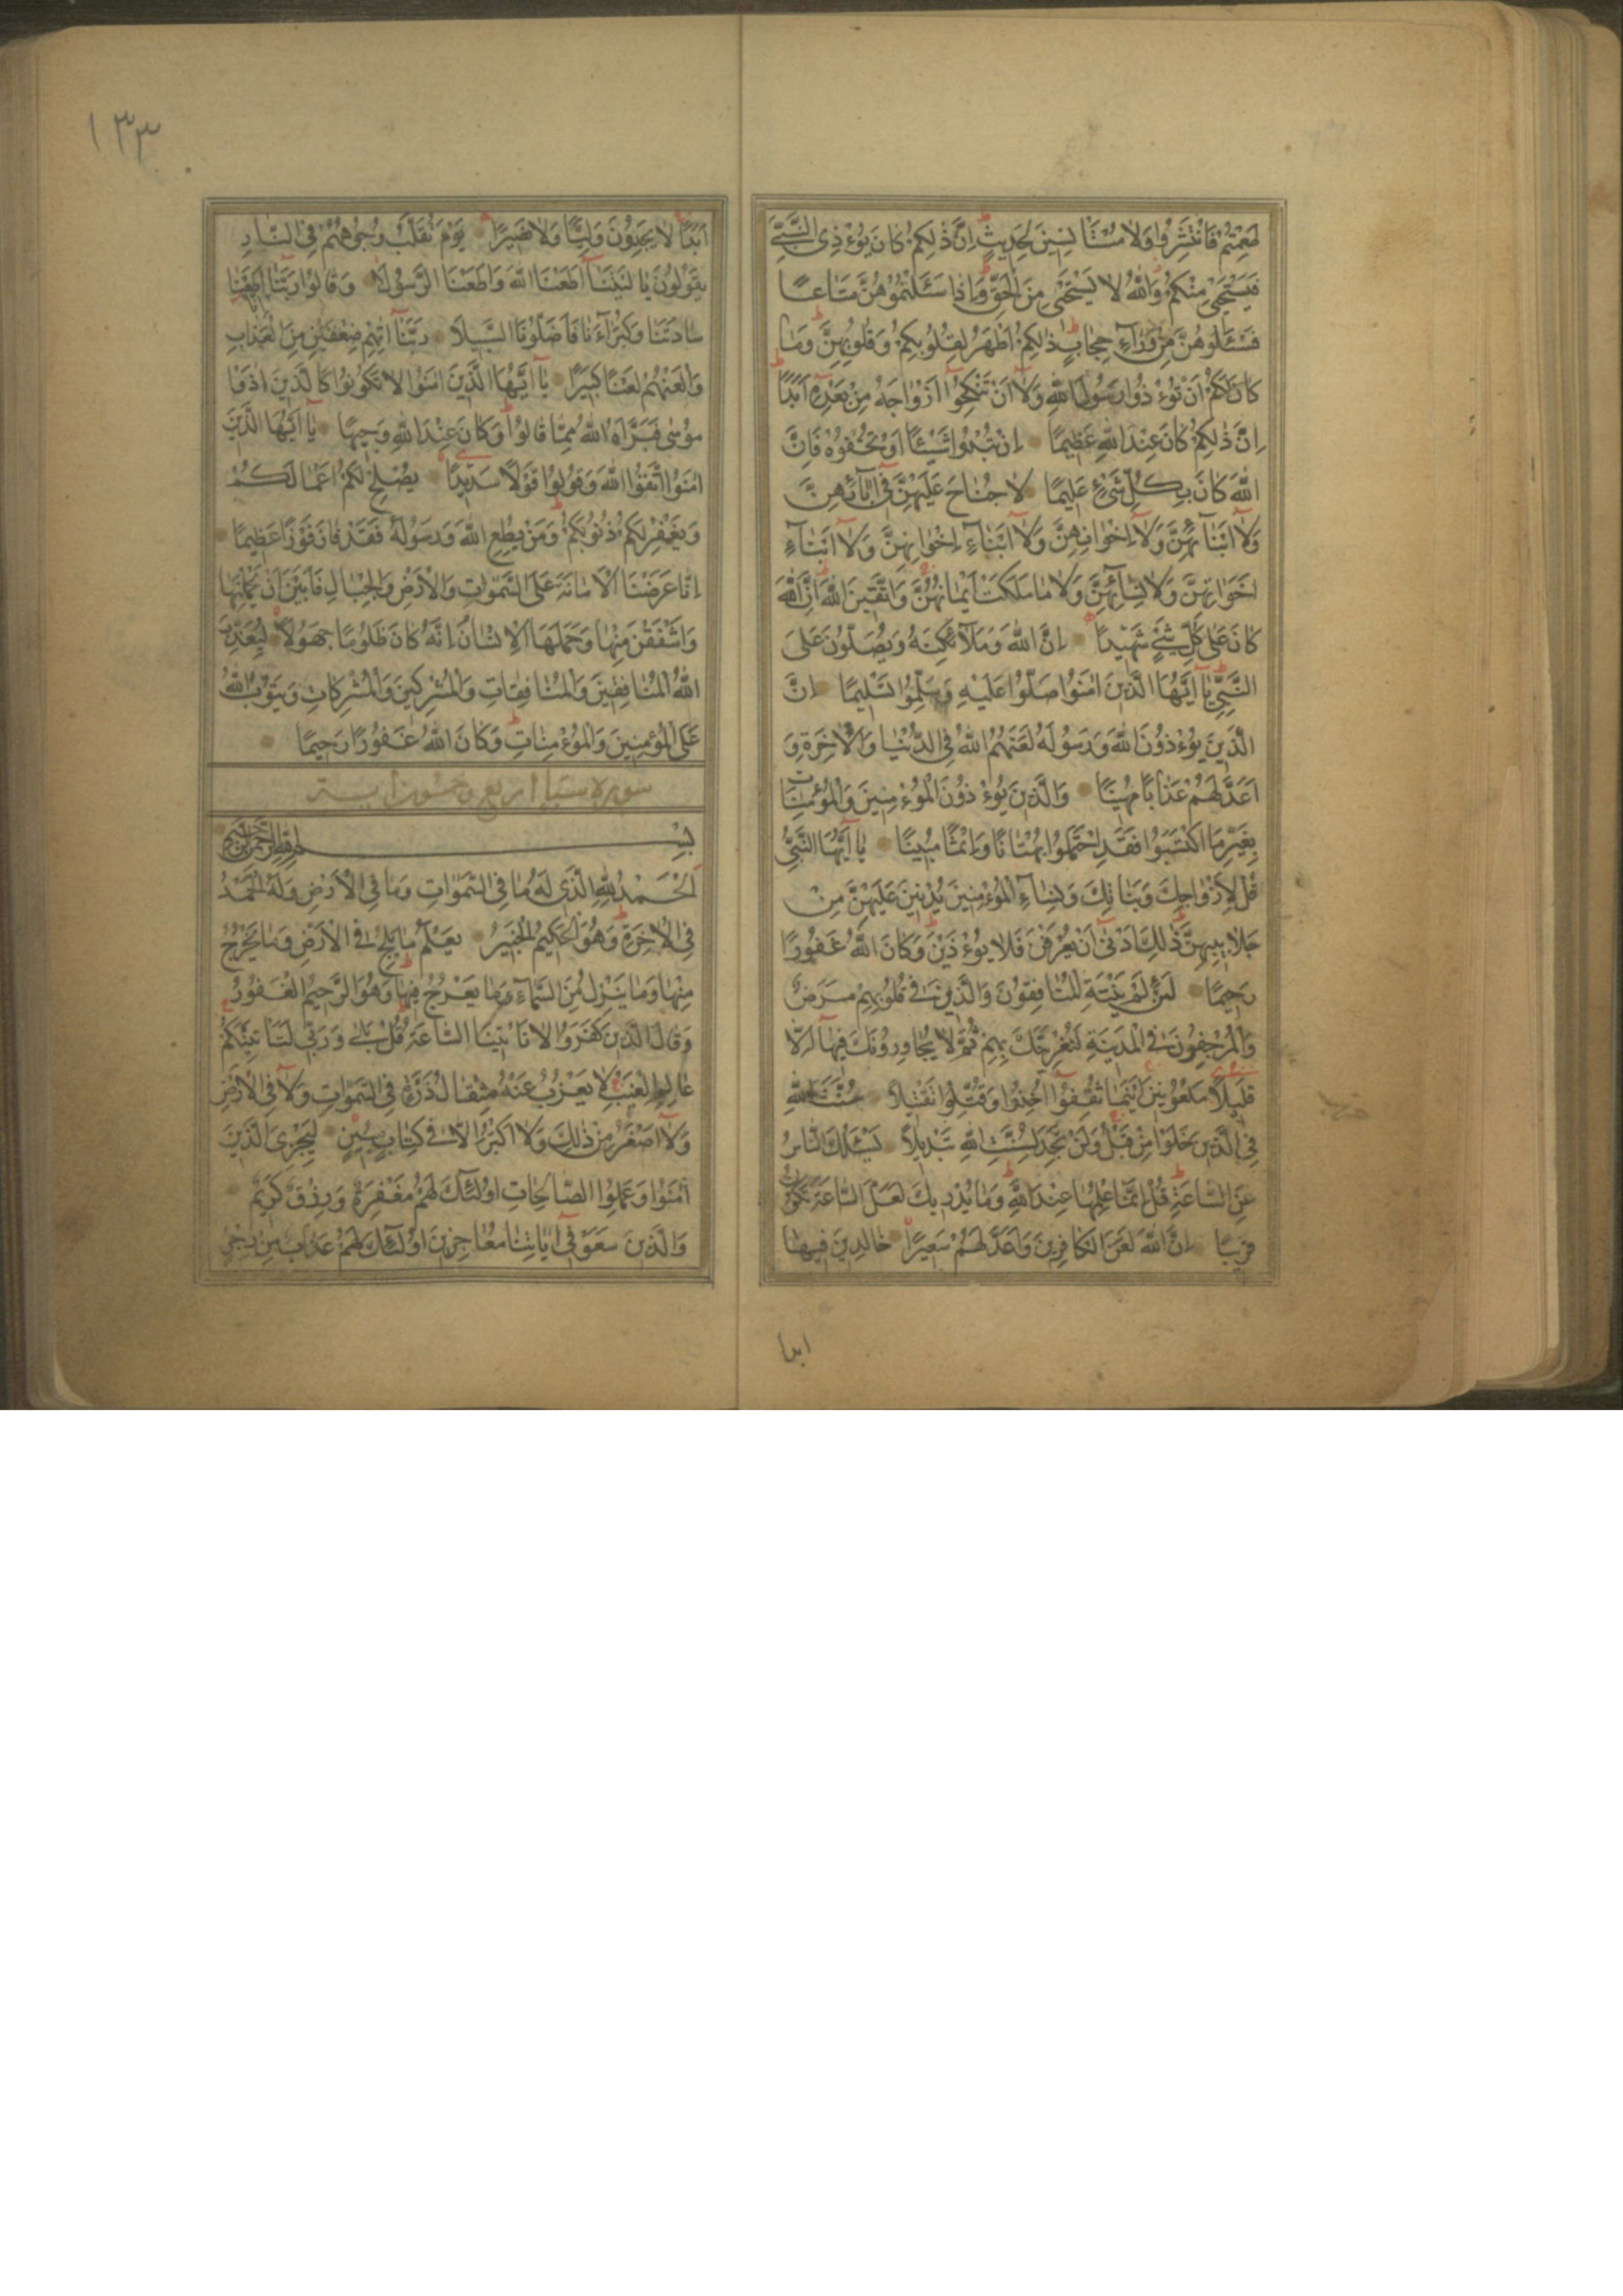 طَعِمْتُمْ فَانْتَشِرُوا وَلَا مُسْتَأْنِسِينَ لِحَدِيثٍ اِنَّ ذٰلِكُمْ كَانَ يُوءْذِى النَّبِىَّ
فَيَسْتَحْيِى مِنْكُمْ وَاللّٰهُ لَا يَسْتَحْيِى مِنَ الْحَقِّ وَاِذَا سَئَلْتُمُوهُنَّ مَتَاعًا
فَسْئَلُوهُنَّ مِنْ وَرَآءِ حِجَابٍ ذٰلِكُمْ اَطْهَرُ لِقُلُوبِكُمْ وَقُلُوبِهِنَّ وَمَا
كَانَ لَكُمْ اَنْ تُوءْذُوا رَسُولَ اللّٰهِ وَلَآ اَنْ تَنْكِحُوٓا اَزْوَاجَهُ مِنْ بَعْدِهِ اَبَدًا
اِنَّ ذٰلِكُمْ كَانَ عِنْدَ اللّٰهِ عَظِيمًا اِنْ تُبْدُوا شَيْئًا اَوْ تُخْفُوهُ فَاِنَّ
اللّٰهَ كَانَ بِكُلِّ شَىْءٍ عَلِيمًا لَا جُنَاحَ عَلَيْهِنَّ فِىٓ اٰبَآئِهِنَّ
وَلَآ اَبْنَآئِهِنَّ وَلَآ اِخْوَانِهِنَّ وَلَآ اَبْنَآءِ اِخْوَانِهِنَّ وَلَآ اَبْنَآءِ
اَخَوَاتِهِنَّ وَلَا نِسَآئِهِنَّ وَلَا مَا مَلَكَتْ اَيْمَانُهُنَّ وَاتَّقِينَ اللّٰهَ اِنَّ اللّٰهَ
كَانَ عَلٰى كُلِّ شَىْءٍ شَهِيدًا اِنَّ اللّٰهَ وَمَلَآئِكَتَهُ يُصَلُّونَ عَلَى
النَّبِىِّ يَآ اَيُّهَا الَّذِينَ اٰمَنُوا صَلُّوا عَلَيْهِ وَسَلِّمُوا تَسْلِيمًا اِنَّ
الَّذِينَ يُوءْذُونَ اللّٰهَ وَرَسُولَهُ لَعَنَهُمُ اللّٰهُ فِى الدُّنْيَا وَالْاٰخِرَةِ وَ
اَعَدَّ لَهُمْ عَذَابًا مُهِينًا وَالَّذِينَ يُوءْذُونَ الْمُوءْمِنِينَ وَالْمُؤْمِنَاتِ
بِغَيْرِ مَا اكْتَسَبُوا فَقَدِ احْتَمَلُوا بُهْتَانًا وَاِثْمًا مُبِينًا يَآ اَيُّهَا النَّبِىُّ
قُلْ لِاَزْوَاجِكَ وَبَنَاتِكَ وَنِسَآءِ الْمُوءْمِنِينَ يُدْنِينَ عَلَيْهِنَّ مِنْ
جَلَابِيبِهِنَّ ذٰلِكَ اَدْنٰىٓ اَنْ يُعْرَفْنَ فَلَا يُوءْذَيْنَ وَكَانَ اللّٰهُ غَفُورًا
رَحِيمًا لَئِنْ لَمْ يَنْتَهِ الْمُنَافِقُونَ وَالَّذِينَ فِى قُلُوبِهِمْ مَرَضٌ
وَالْمُرْجِفُونَ فِى الْمَدِينَةِ لَنُغْرِيَنَّكَ بِهِمْ ثُمَّ لَا يُجَاوِرُونَكَ فِيهَآ اِلَّا
قَلِيلًا مَلْعُونِينَ اَيْنَمَا ثُقِفُوٓا اُخِذُوا وَقُتِّلُوا تَقْتِيلًا سُنَّتَ اللّٰهِ
فِى الَّذِينَ خَلَوْا مِنْ قَبْلُ وَلَنْ تَجِدَ لِسُنَّتِ اللّٰهِ تَبْدِيلًا يَسْئَلُكَ النَّاسُ
عَنِ السَّاعَةِ قُلْ اِنَّمَا عِلْمُهَا عِنْدَ اللّٰهِ وَمَا يُدْرِيكَ لَعَلَّ السَّاعَةَ تَكُونُ
قَرِيبًا اِنَّ اللّٰهَ لَعَنَ الْكَافِرِينَ وَاَعَدَّ لَهُمْ سَعِيرًا خَالِدِينَ فِيهَا
ابدا
١٣٣
اَبَدًا لَا يَجِدُونَ وَلِيًّا وَلَا نَصِيرًا يَوْمَ تُقَلَّبُ وُجُوهُهُمْ فِى النَّارِ
يَقُولُونَ يَا لَيْتَنَآ اَطَعْنَا اللّٰهَ وَاَطَعْنَا الرَّسُولَا وَقَالُوا رَبَّنَآ اِنَّآ اَطَعْنَا
سَادَتَنَا وَكُبَرَآءَنَا فَاَضَلُّونَا السَّبِيلَا رَبَّنَآ اٰتِهِمْ ضِعْفَيْنِ مِنَ الْعَذَابِ
وَالْعَنْهُمْ لَعْنًا كَبِيرًا يَآ اَيُّهَا الَّذِينَ اٰمَنُوا لَا تَكُونُوا كَالَّذِينَ اٰذَوْا
مُوسٰى فَبَرَّاَهُ اللّٰهُ مِمَّا قَالُوا وَكَانَ عِنْدَ اللّٰهِ وَجِيهًا يَآ اَيُّهَا الَّذِينَ
اٰمَنُوا اتَّقُوا اللّٰهَ وَقُولُوا قَوْلًا سَدِيدًا يُصْلِحْ لَكُمْ اَعْمَالَكُمْ
وَيَغْفِرْ لَكُمْ ذُنُوبَكُمْ وَمَنْ يُطِعِ اللّٰهَ وَرَسُولَهُ فَقَدْ فَازَ فَوْزًا عَظِيمًا
اِنَّا عَرَضْنَا الْاَمَانَةَ عَلَى السَّمٰوَاتِ وَالْاَرْضِ وَالْجِبَالِ فَاَبَيْنَ اَنْ يَحْمِلْنَهَا
وَاَشْفَقْنَ مِنْهَا وَحَمَلَهَا الْاِنْسَانُ اِنَّهُ كَانَ ظَلُومًا جَهُولًا لِيُعَذِّبَ
اللّٰهُ الْمُنَافِقِينَ وَالْمُنَافِقَاتِ وَالْمُشْرِكِينَ وَالْمُشْرِكَاتِ وَيَتُوبَ اللّٰهُ
عَلَى الْمُؤْمِنِينَ وَالْمُوءْمِنَاتِ وَكَانَ اللّٰهُ غَفُورًا رَحِيمًا
سورة سبا اربع وخمسون اية
بِسْمِ اللّٰهِ الرَّحْمٰنِ الرَّحِيمِ
اَلْحَمْدُ لِلّٰهِ الَّذِى لَهُ مَا فِى السَّمٰوَاتِ وَمَا فِى الْاَرْضِ وَلَهُ الْحَمْدُ
فِى الْاٰخِرَةِ وَهُوَ الْحَكِيمُ الْخَبِيرُ يَعْلَمُ مَا يَلِجُ فِى الْاَرْضِ وَمَا يَخْرُجُ
مِنْهَا وَمَا يَنْزِلُ مِنَ السَّمَآءِ وَمَا يَعْرُجُ فِيهَا وَهُوَ الرَّحِيمُ الْغَفُورُ
وَقَالَ الَّذِينَ كَفَرُوا لَا تَاْتِينَا السَّاعَةُ قُلْ بَلٰى وَرَبِّى لَتَاْتِيَنَّكُمْ
عَالِمِ الْغَيْبِ لَا يَعْزُبُ عَنْهُ مِثْقَالُ ذَرَّةٍ فِى السَّمٰوَاتِ وَلَا فِى الْاَرْضِ
وَلَآ اَصْغَرُ مِنْ ذٰلِكَ وَلَآ اَكْبَرُ اِلَّا فِى كِتَابٍ مُبِينٍ لِيَجْزِىَ الَّذِينَ
اٰمَنُوا وَعَمِلُوا الصَّالِحَاتِ اُولٰئِكَ لَهُمْ مَغْفِرَةٌ وَرِزْقٌ كَرِيمٌ
وَالَّذِينَ سَعَوْ فِىٓ اٰيَاتِنَا مُعَاجِزِينَ اُولٰٓئِكَ لَهُمْ عَذَابٌ مِنْ رِجْزٍ